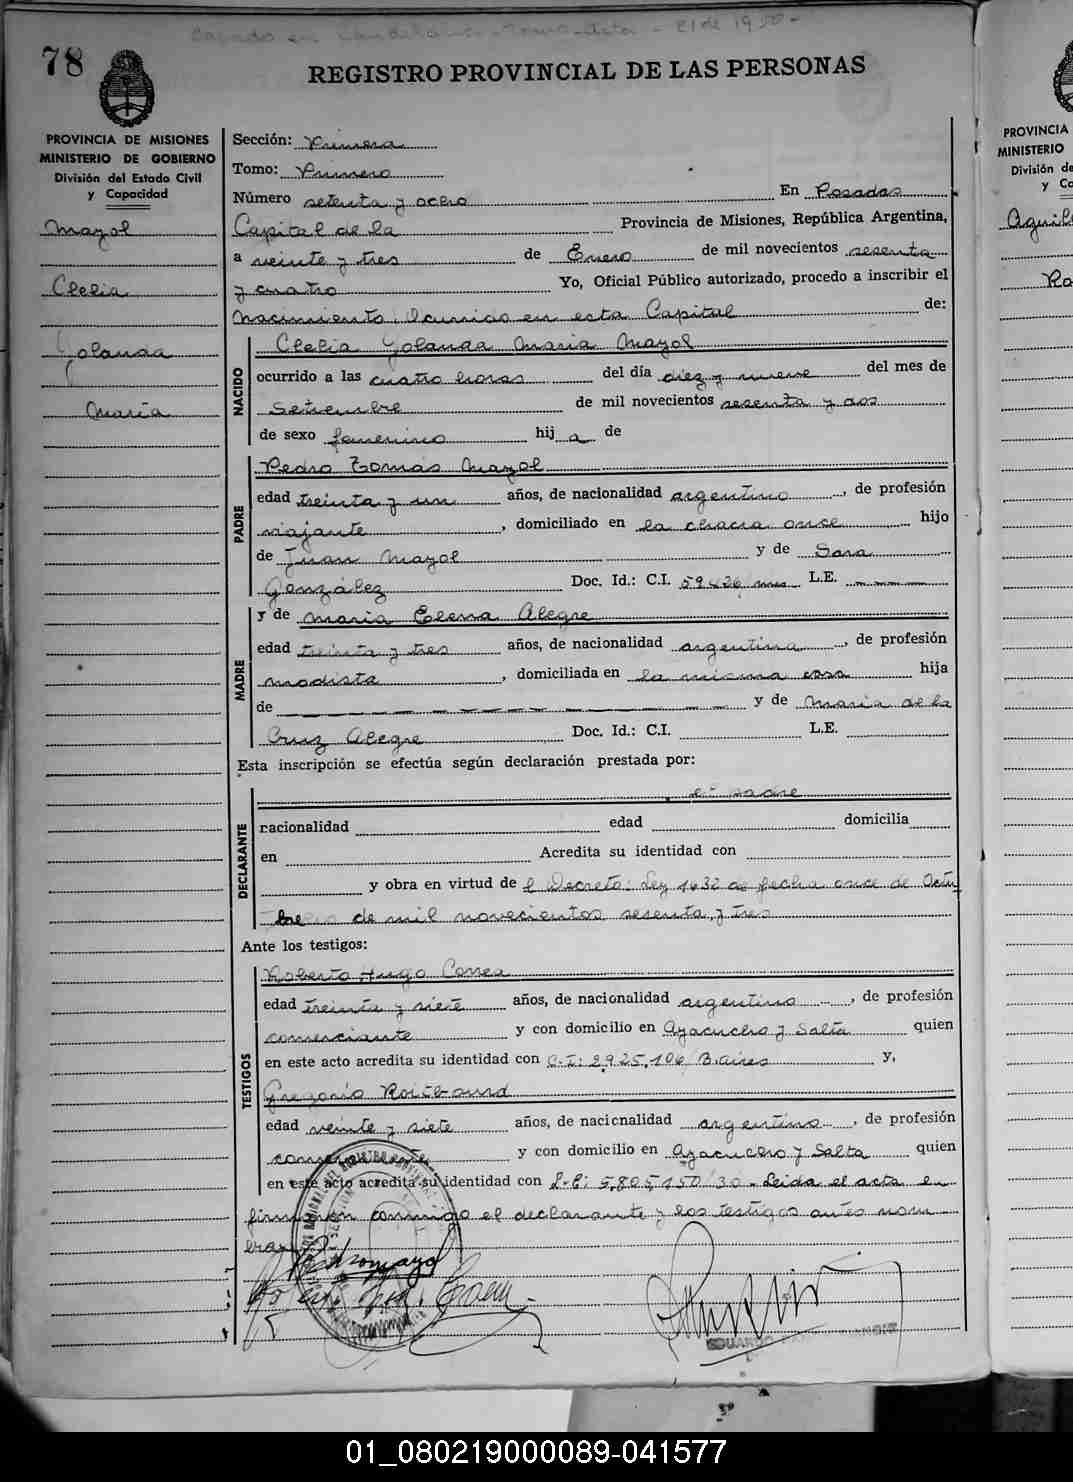 Casado en Candelaria - Tomo - Acta - 21 de 1980 -
78
REGISTRO PROVINCIAL DE LAS PERSONAS
PROVINCIA DE MISIONES
MINISTERIO DE GOBIERNO
División del Estado Civil
y Capacidad
Mayol
Clelia
Yolanda
María
Sección: Primera
Tomo: Primero
Número setenta y ocho En Posadas
Capital de la Provincia de Misiones, República Argentina,
a veinte y tres de Enero de mil novecientos sesenta
y cuatro Yo, Oficial Público autorizado, procedo a inscribir el
Nacimiento. Ocurrido en esta Capital de:
NACIDO
Clelia Yolanda María Mayol
ocurrido a las cuatro horas del día diez y nueve del mes de
Setiembre de mil novecientos sesenta y dos
de sexo femenino hij a de
PADRE
Pedro Tomás Mayol
edad treinta y un años, de nacionalidad argentino, de profesión
viajante, domiciliado en la chacra once hijo
de Juan Mayol y de Sara
González Doc. Id.: C.I. 59426/mnes L.E.
MADRE
y de María Elena Alegre
edad treinta y tres años, de nacionalidad argentina, de profesión
modista, domiciliada en la misma casa hija
de y de María de la
Cruz Alegre Doc. Id.: C.I. L.E.
Esta inscripción se efectúa según declaración prestada por:
DECLARANTE
el padre
racionalidad edad domicilia
en Acredita su identidad con
y obra en virtud de l Decreto: Ley 4632 de fecha once de Octu-
bre de mil novecientos sesenta y tres
Ante los testigos:
TESTIGOS
Roberto Hugo Correa
edad treinta y siete años, de nacionalidad argentino, de profesión
comerciante y con domicilio en Ayacucho y Salta quien
en este acto acredita su identidad con C.I: 2.925.106/B.aires y,
Gregorio Roitbourd
edad veinte y siete años, de nacicnalidad argentino, de profesión
comerciante y con domicilio en Ayacucho y Salta quien
en este acto acredita su identidad con L.E: 5.805.150/30 - Leida el acta la
firmaron conmigo el declarante y los testigos antes nom
brados
Pedro Mayol
EDUARDO
PROVINCIA
MINISTERIO
División de
y Ca
Aguil
Ro
01_080219000089-041577